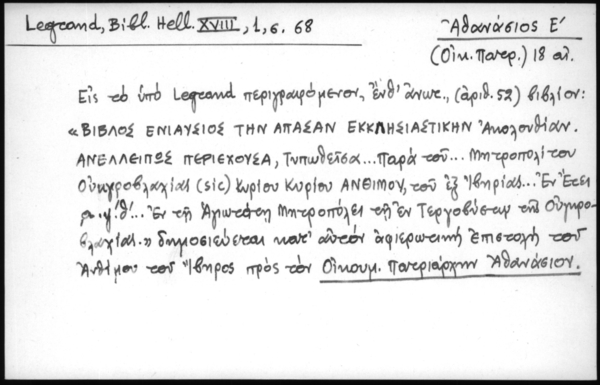 Legrand, Bibl. Hell. XVIII, 1, σ. 68
Ἀθανάσιος Ε'
(Οἰκ. Πατρ.) 18 αἰ.
Εἰς τὸ ὑπὸ Legrand περιγραφόμενον, ἔνθ' ἄνωτ., (ἀριθ. 52) βιβλίον:
«ΒΙΒΛΟΣ ΕΝΙΑΥΣΙΟΣ ΤΗΝ ΑΠΑΣΑΝ ΕΚΚΛΗΣΙΑΣΤΙΚΗΝ Ἀκολουθίαν.
ΑΝΕΛΛΕΙΠΩΣ ΠΕΡΙΕΧΟΥΣΑ, Τυπωθεῖσα... Παρὰ τοῦ... Μητροπολίτου
Οὑγγροβλαχίας (sic) Κυρίου Κυρίου ΑΝΘΙΜΟΥ, τοῦ ἐξ Ἰβηρίας... Ἐν Ἔτει
͵α.ψ'.θ'... Ἐν τῇ Ἁγιωτάτῃ Μητροπόλει τῇ ἐν Τεργοβύστῳ τῆς Οὑγκρο-
βλαχίας.» δημοσιεύεται κατ' αὐτὸν ἀφιερωτικὴ ἐπιστολὴ τοῦ
Ἀνθίμου τοῦ Ἴβηρος πρὸς τὸν Οἰκουμ. Πατριάρχην Ἀθανάσιον.